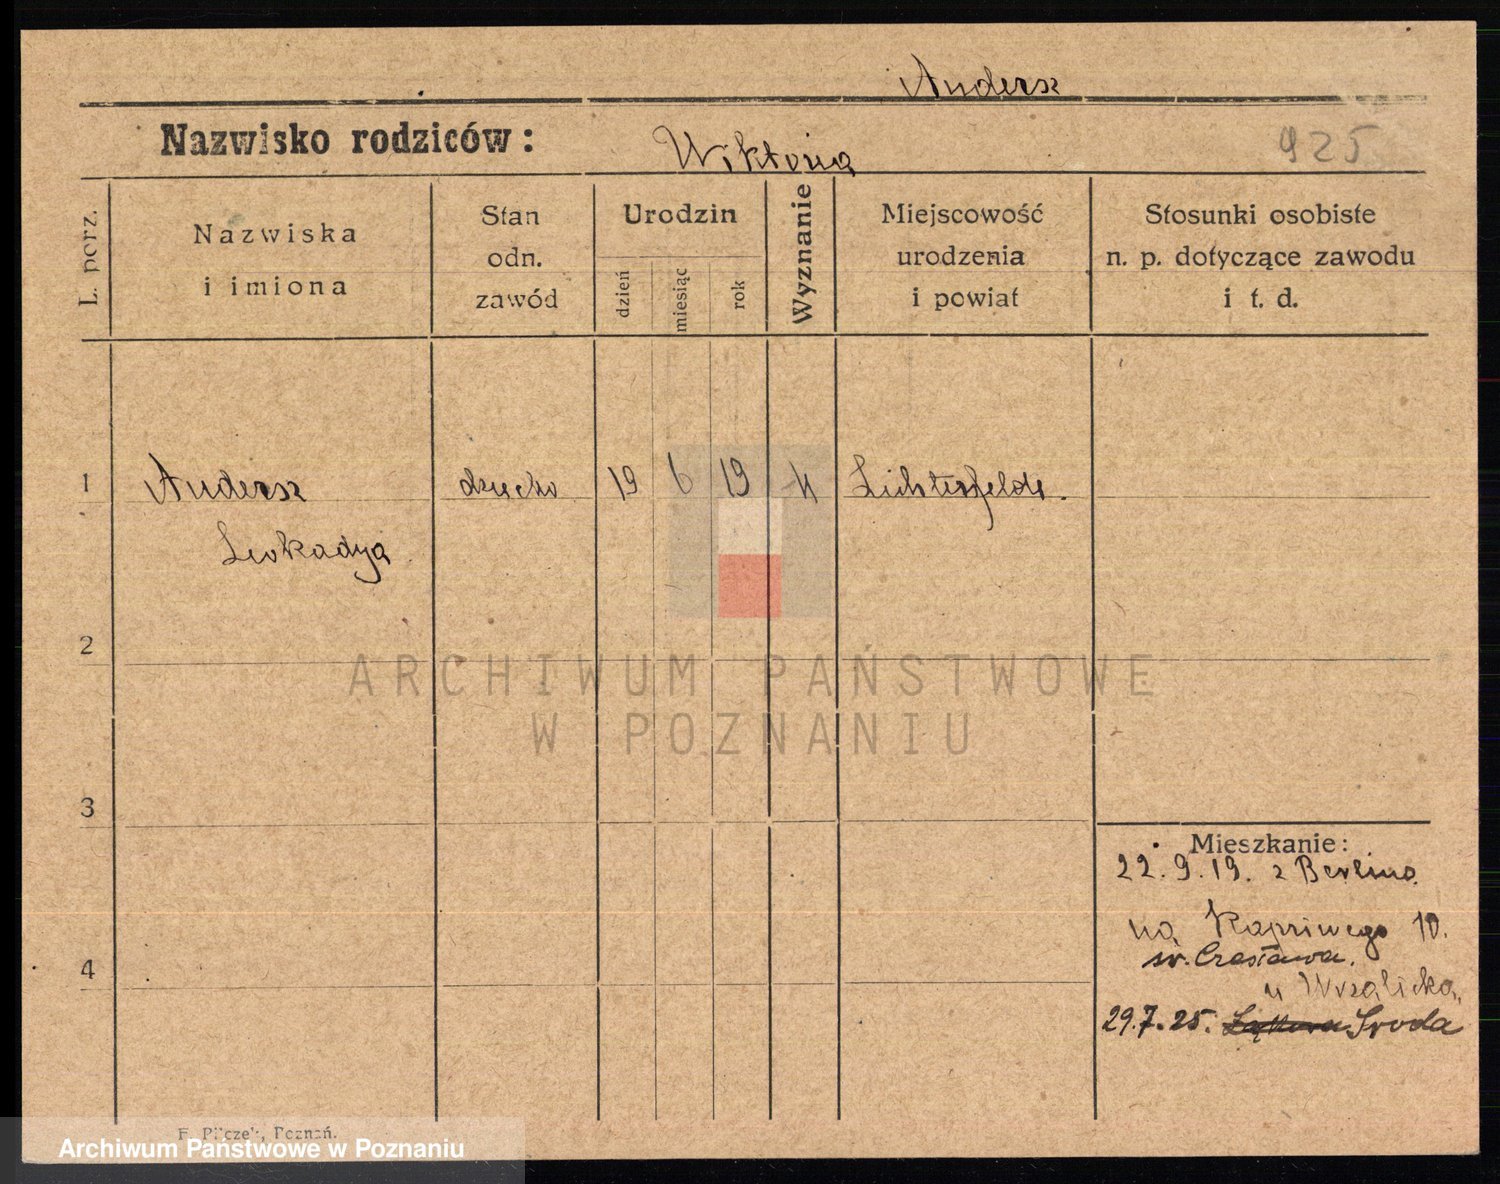 Andersz
Nazwisko rodziców: Wiktoria
925
L. porz.
Nazwiska
i imiona
Stan
odn.
zawód
Urodzin
dzień
miesiąc
rok
Wyznanie
Miejscowość
urodzenia
i powiat
Stosunki osobiste
n. p. dotyczące zawodu
i t. d.
1 Andersz dziecko 19 6 19 Lichterfelde.
Leokadya
2
ARCHIWUM PAŃSTWOWE
W POZNANIU
3
Mieszkanie:
22.9.19. z Berlina
na Kapriwego 10.
św. Czesława.
4
u Wrzalicka,
29.7.25. Środa
F. Pilczek, Poznań.
Archiwum Państwowe w Poznaniu